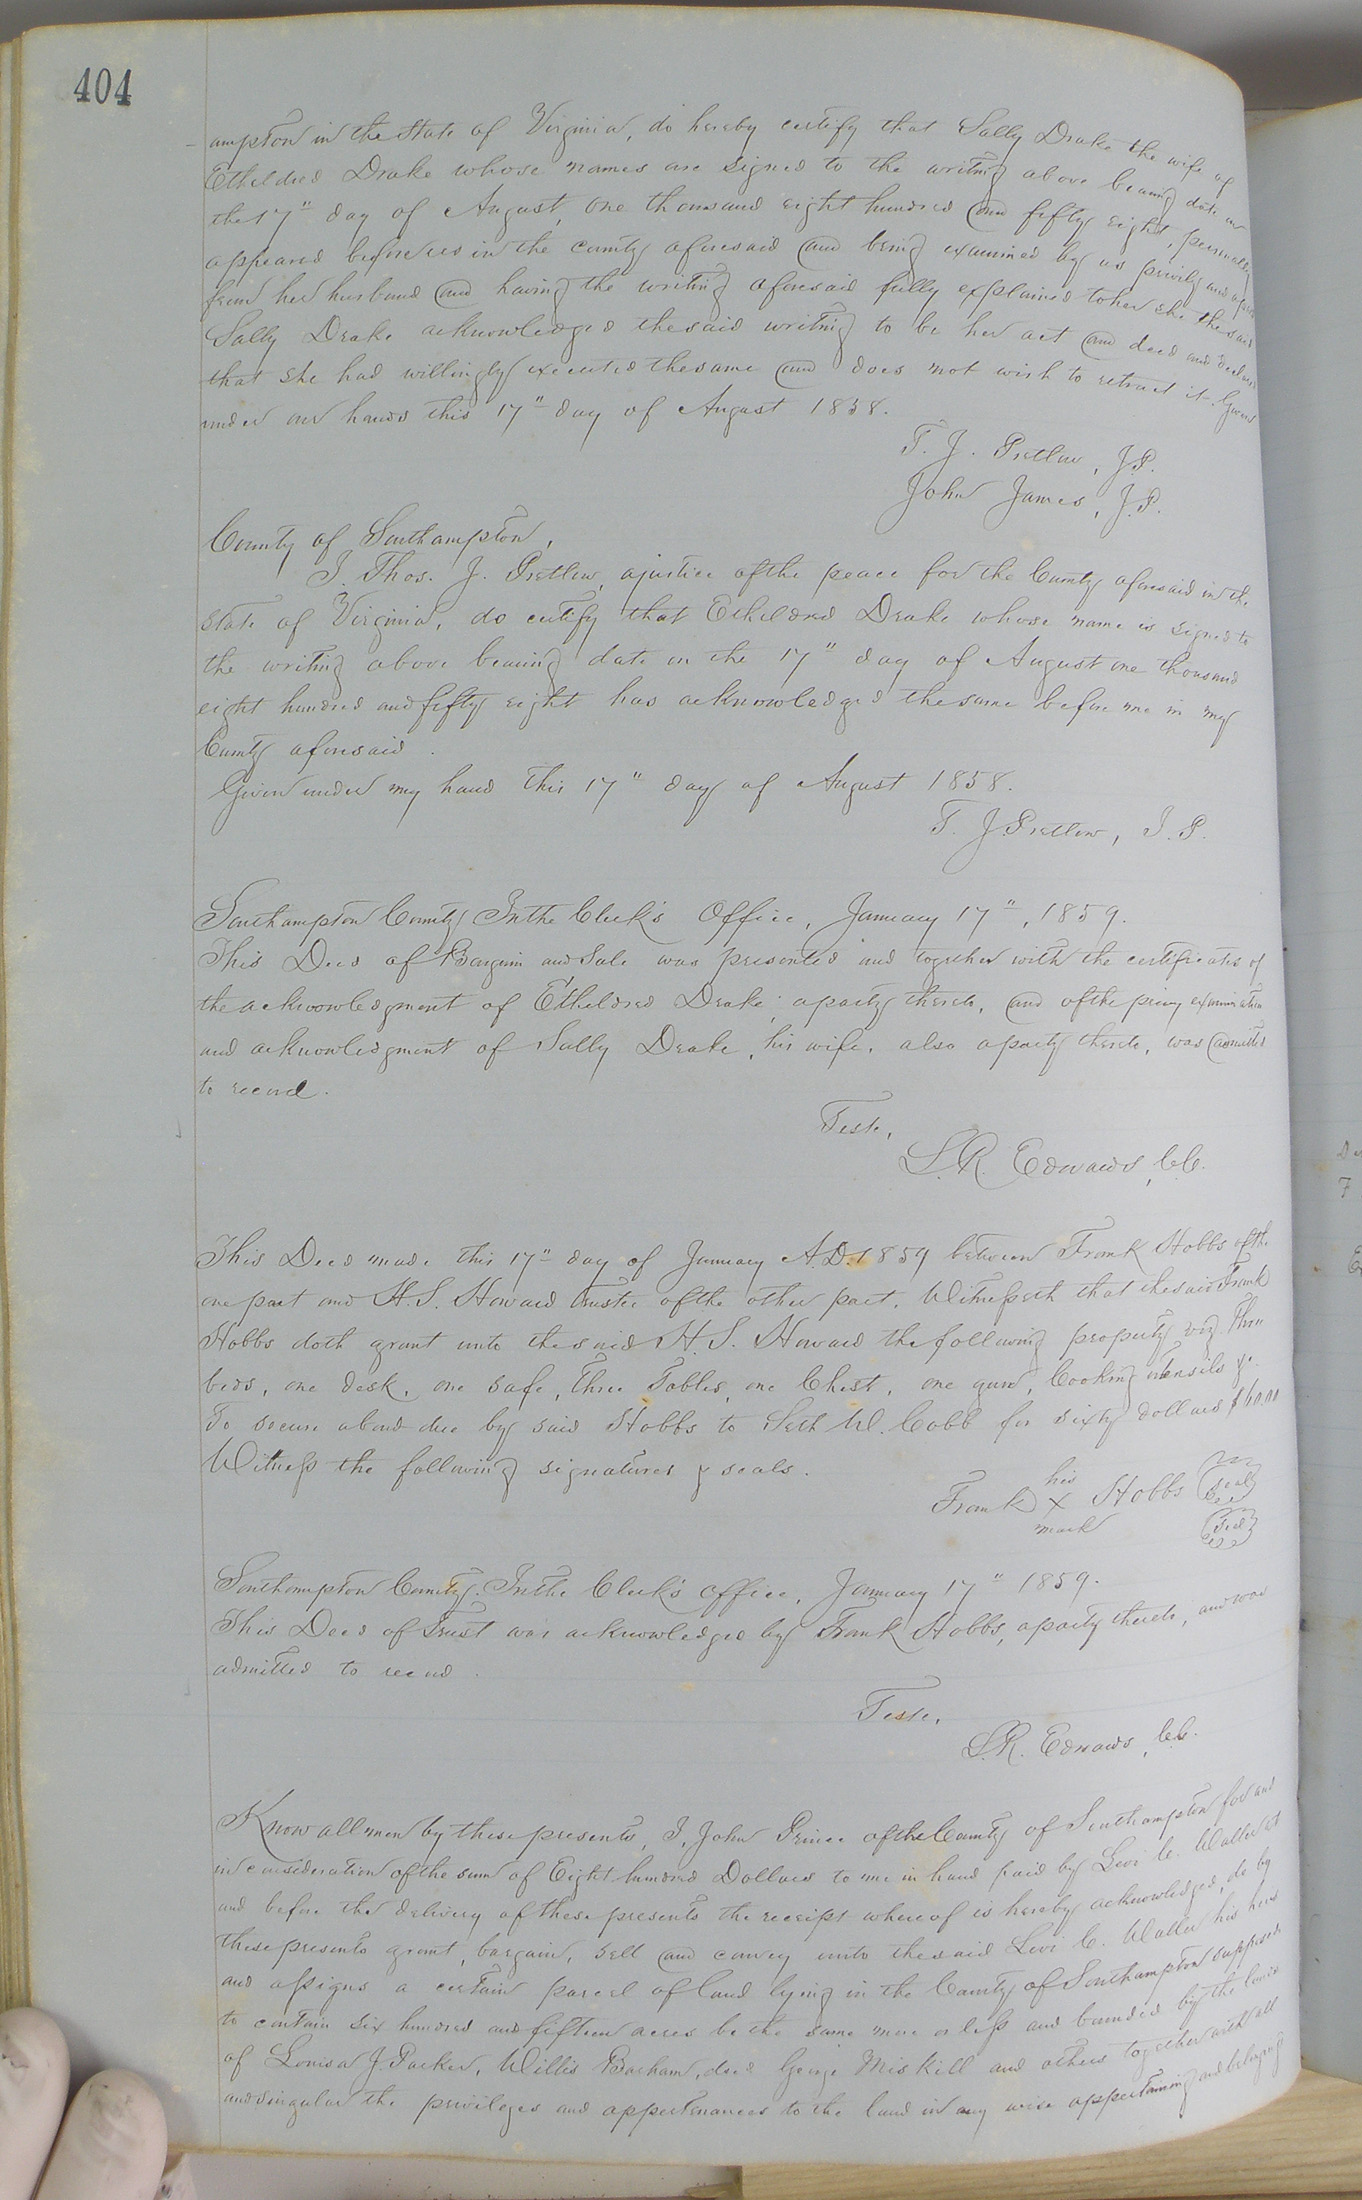 404
ampton in the State of Virginia, do hereby certify that Sally Drake the wife of
Etheldred Drake whose names are signed to the writing above bearing date on
the 17" day of August, one thousand eight hundred and fifty eight, personally
appeared before us in the county aforesaid and being examined by us privily and apart
from her husband and having the writing aforesaid fully explained to her she the said
Sally Drake acknowledged the said writing to be her act and deed and declared
that she had willingly executed the same and does not wish to retract it. Given
under our hands this 17" day of August 1858.
T. J. Pretlow, J.P.
John James, J.P.
County of Southampton,
I, Thos. J. Pretlow, a justice of the peace for the County aforesaid in the
State of Virginia, do certify that Etheldred Drake whose name is signed to
the writing above bearing date on the 17" day of August one thousand
eight hundred and fifty eight has acknowledged the same before me in my
County aforesaid.
Given under my hand this 17" day of August 1858.
T. J. Pretlow, J.P.
Southampton County In the Clerk's Office, January 17", 1859.
This Deed of Bargain and Sale was presented and together with the certificates of
the acknowledgment of Etheldred Drake, a party thereto, and of the privy examination
and acknowledgment of Sally Drake, his wife, also a party thereto, was admitted
to record.
Teste,
L. R. Edwards, C.C.
This Deed made this 17" day of January A.D. 1859 between Frank Hobbs of the
one part and H. S. Howard Trustee of the other part, Witnesseth that the said Frank
Hobbs doth grant unto the said H. S. Howard the following property viz Three
beds, one desk, one safe, Three Tables, one Chest, one gun, Cooking utensils &c.
To secure a bond due by said Hobbs to Seth W. Cobb for sixty dollars $60.00
Witness the following signatures & seals.
his
Frank X Hobbs Seal
mark Seal
Southampton County. In the Clerk's office, January 17" 1859.
This Deed of Trust was acknowledged by Frank Hobbs, a party thereto, and was
admitted to record.
Teste,
L. R. Edwards, C.C.
Know all men by these presents, I, John Prince of the County of Southampton for and
in consideration of the sum of Eight hundred Dollars to me in hand paid by Levi C. Waller at
and before the delivery of these presents the receipt whereof is hereby acknowledged, do by
these presents grant, bargain, sell and convey unto the said Levi C. Waller his heirs
and assigns a certain parcel of land lying in the County of Southampton supposed
to contain six hundred and fifteen acres be the same more or less and bounded by the lands
of Louisa J. Parker, Willis Barham, dsed George Miskill and others together with all
and singular the privileges and appertenances to the land in any wise appertaining and belonging